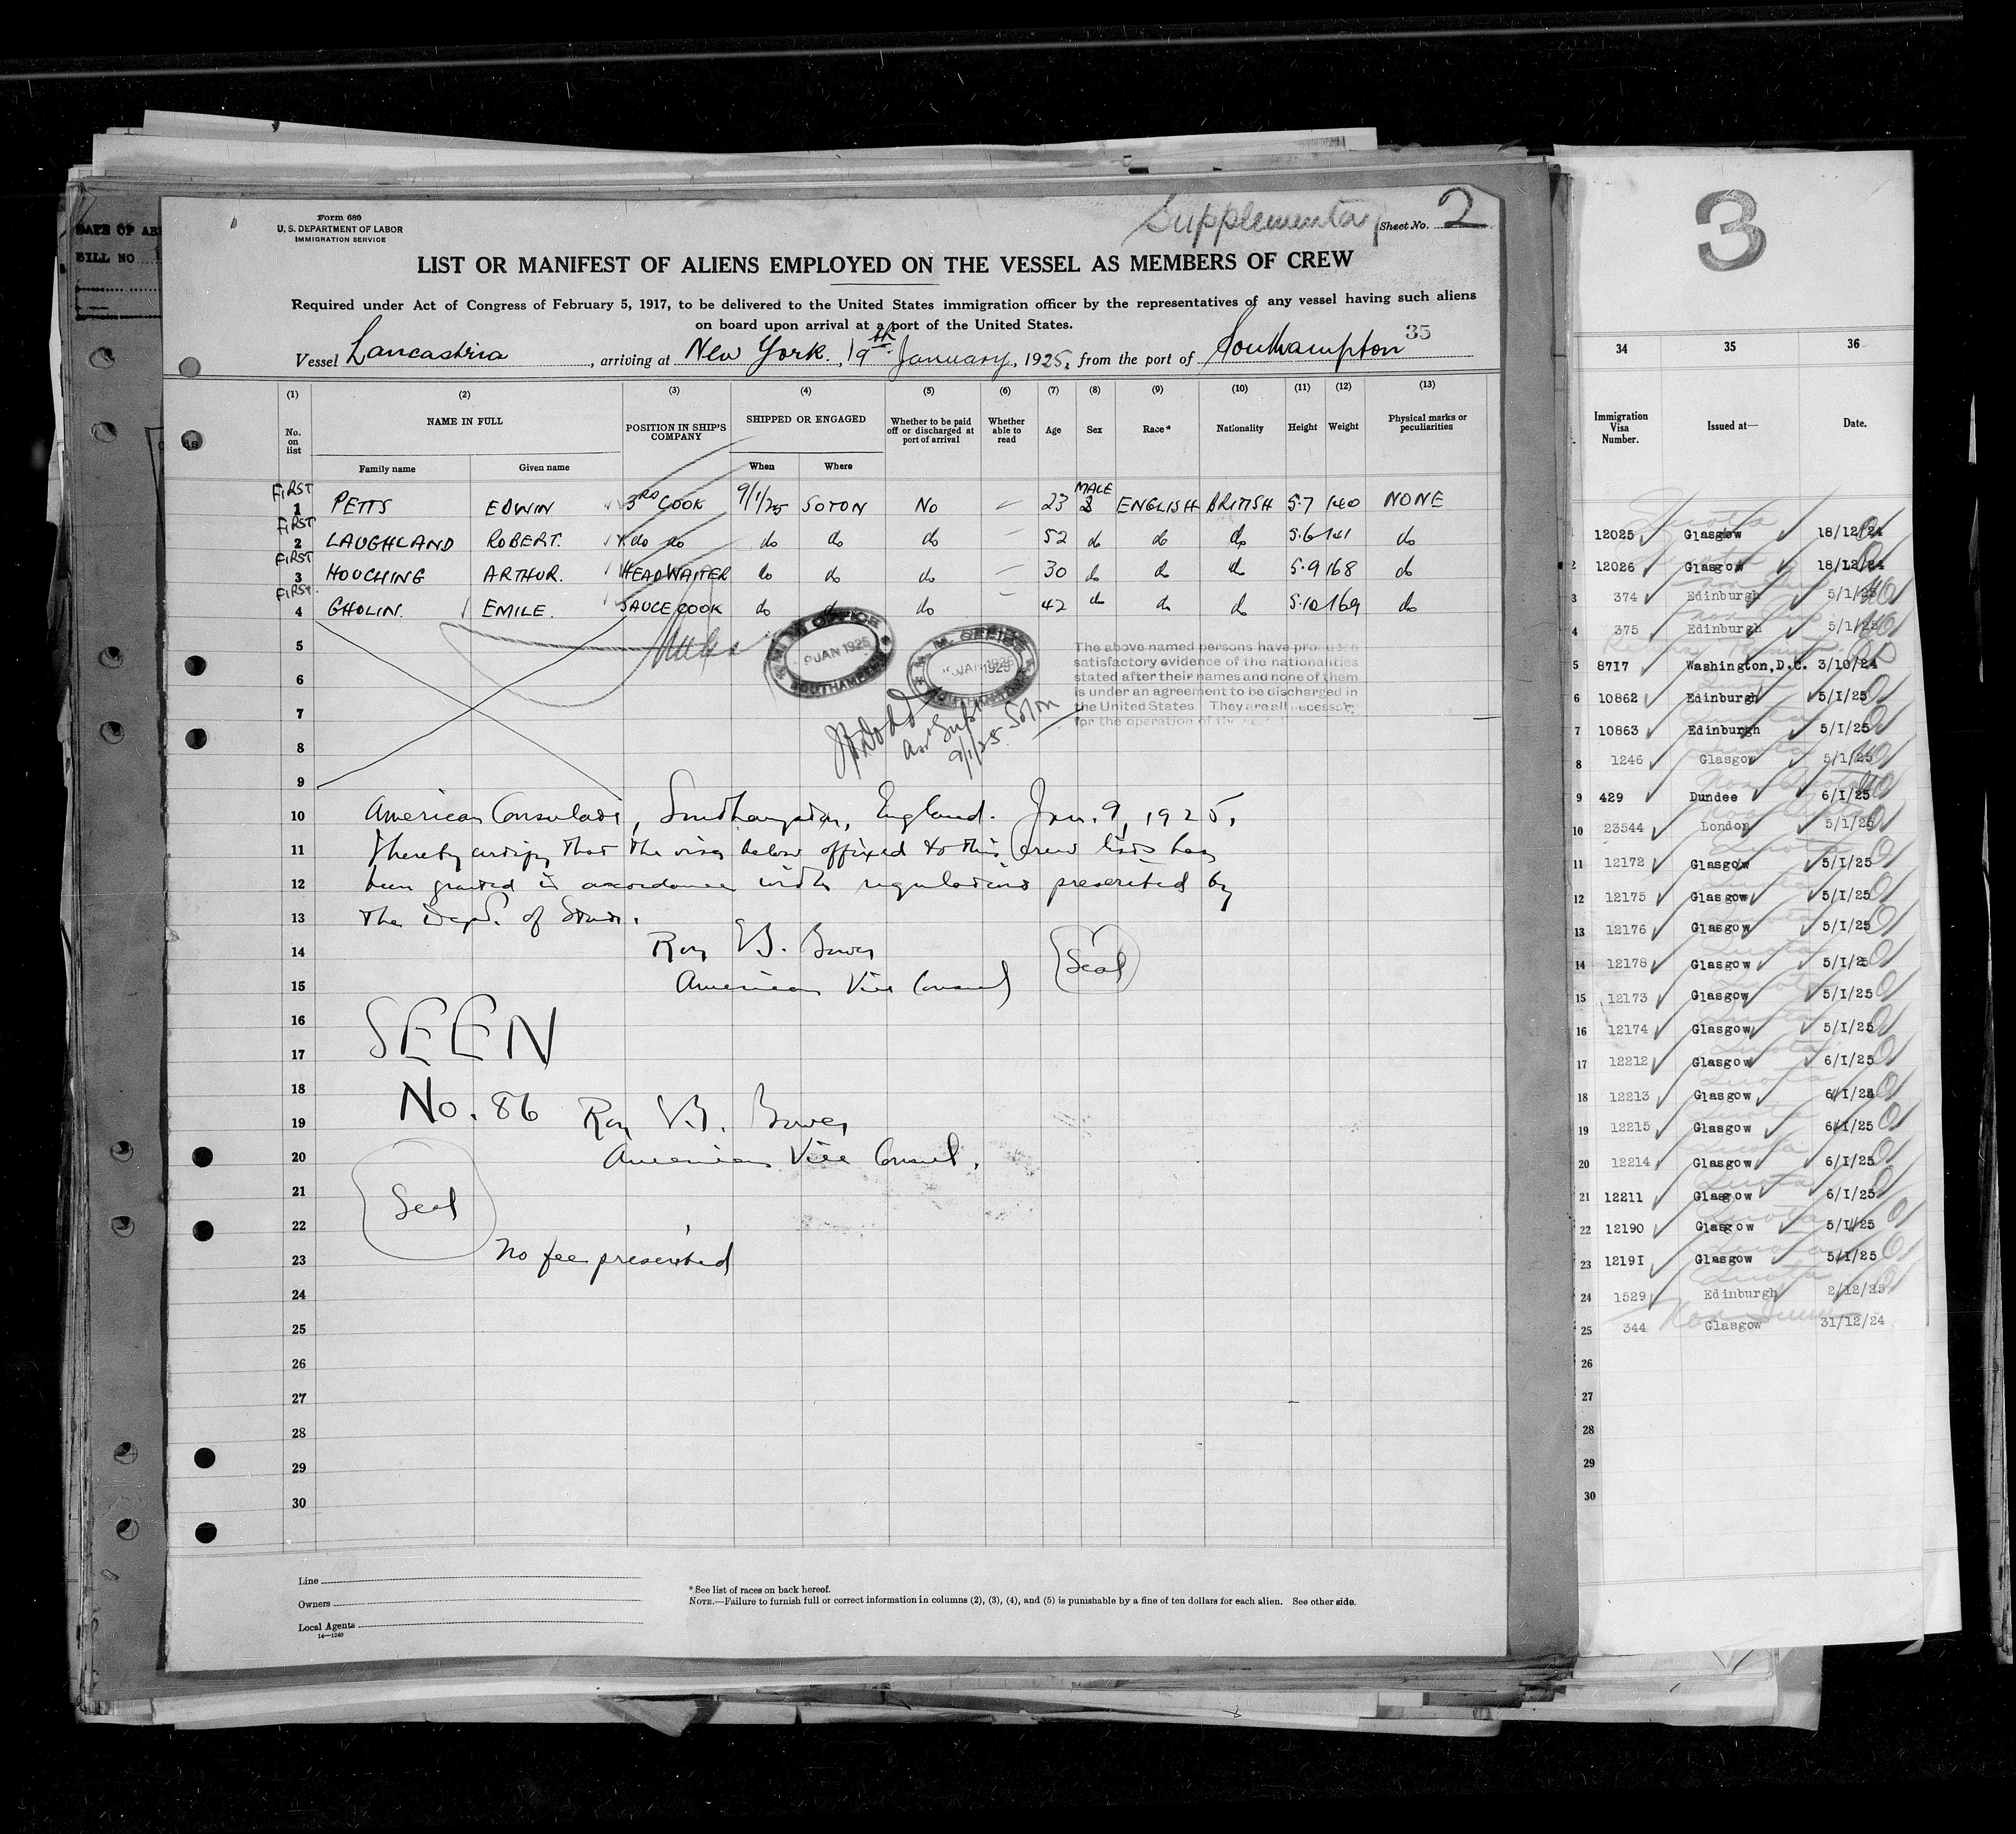 DATE OF
BILL NO
Form 680
U. S. DEPARTMENT OF LABOR
IMMIGRATION SERVICE
Supplementary Sheet No. 2
LIST OR MANIFEST OF ALIENS EMPLOYED ON THE VESSEL AS MEMBERS OF CREW
Required under Act of Congress of February 5, 1917, to be delivered to the United States immigration officer by the representatives of any vessel having such aliens
on board upon arrival at a port of the United States.
35
Vessel Lancastria, arriving at New York, 19th January, 1925, from the port of Southampton
(1) (2) (3) (4) (5) (6) (7) (8) (9) (10) (11) (12) (13)
No. on list NAME IN FULL POSITION IN SHIP'S COMPANY SHIPPED OR ENGAGED Whether to be paid off or discharged at port of arrival Whether able to read Age Sex Race* Nationality Height Weight Physical marks or peculiarities
Family name Given name When Where
FIRST 1 PETTS EDWIN 3RD COOK 9/1/25 SOTON NO — 23 MALE ENGLISH BRITISH 5.7 140 NONE
FIRST 2 LAUGHLAND ROBERT. do do do do do — 52 do do do 5.6 141 do
FIRST 3 HOUCHING ARTHUR. HEADWAITER do do do — 30 do do do 5.9 168 do
FIRST. 4 GHOLIN. EMILE. SAUCE COOK do do do — 42 do do do 5.10 169 do
5
6
7
8
9
M.M. OFFICE
9 JAN 1925
SOUTHAMPTON
M.M. OFFICE
JAN 1925
The above named persons have produced
satisfactory evidence of the nationalities
stated after their names and none of them
is under an agreement to be discharged in
the United States. They are all necessary
for the operation of the
Supt
9/1/25. Soton
10 American Consulate, Southampton, England. Jan. 9, 1925.
11 I hereby certify that the visa below affixed to this crew list has
12 been granted in accordance with regulations prescribed by
13 the Dept. of State.
14 Roy E.B. Bower
15 American Vice Consul (Seal)
16 SEEN
17
18 No. 86
19 Roy E.B. Bower
20 American Vice Consul.
21 Seal
22
23 No fee prescribed
24
25
26
27
28
29
30
Line
Owners
Local Agents
14—1240
* See list of races on back hereof.
NOTE.—Failure to furnish full or correct information in columns (2), (3), (4), and (5) is punishable by a fine of ten dollars for each alien. See other side.
3
34 35 36
Immigration Visa Number. Issued at— Date.
12025 Glasgow 18/12/24
2 12026 Glasgow 18/12/24
3 374 Edinburgh 5/1/25
4 375 Edinburgh 5/1/25
5 8717 Washington, D.C. 3/10/24
6 10862 Edinburgh 5/1/25
7 10863 Edinburgh 5/1/25
8 1246 Glasgow 5/1/25
9 429 Dundee 6/1/25
10 23544 London 5/1/25
11 12172 Glasgow 5/1/25
12 12175 Glasgow 5/1/25
13 12176 Glasgow 5/1/25
14 12178 Glasgow 5/1/25
15 12173 Glasgow 5/1/25
16 12174 Glasgow 5/1/25
17 12212 Glasgow 6/1/25
18 12213 Glasgow 6/1/25
19 12215 Glasgow 6/1/25
20 12214 Glasgow 6/1/25
21 12211 Glasgow 6/1/25
22 12190 Glasgow 5/1/25
23 12191 Glasgow 5/1/25
24 1529 Edinburgh 2/12/25
25 344 Glasgow 31/12/24
26
27
28
29
30